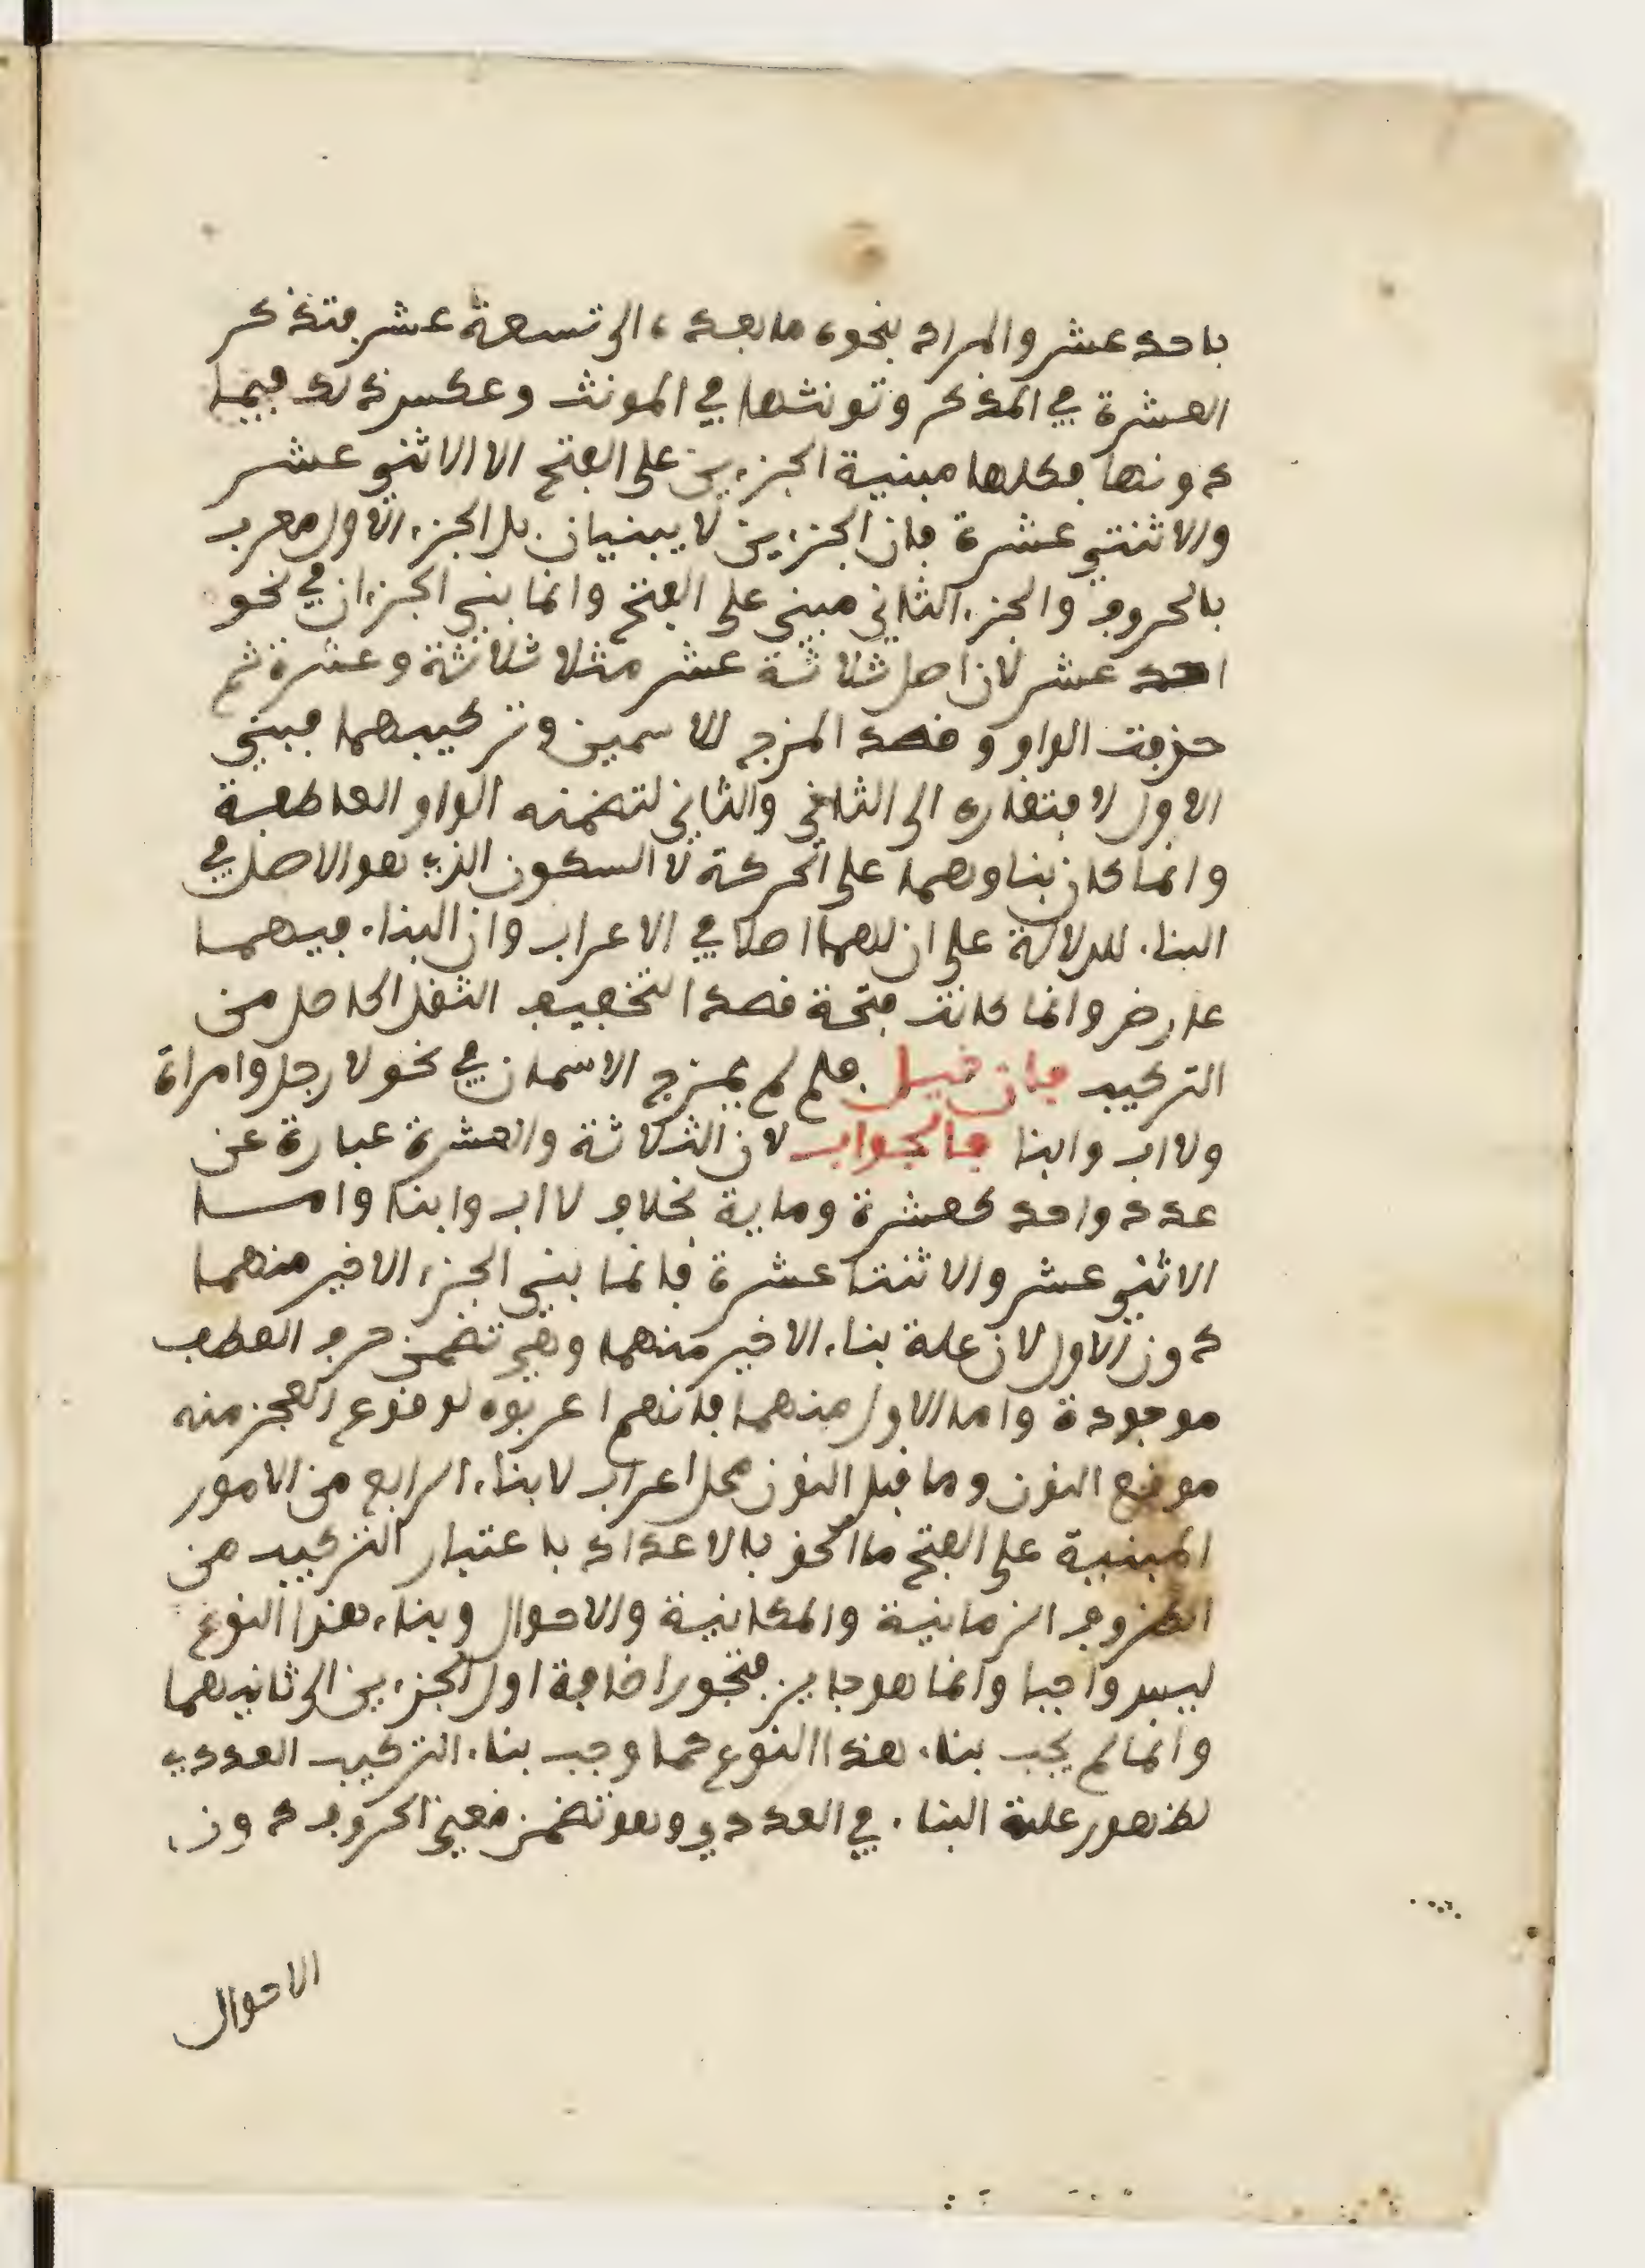 باحد عشر والمراد بنحوه ما بعده الى تسعة عشر فتذكر
العشرة في المذكر وتونثها في المونث وعكس ذلك فيما
دونها فكلها مبنية الجزءين على الفتح الا الاثني عشر
والاثنتي عشرة فان الجزءين لا يبنيان بل الجزء الاول معرب
بالحروف والجزء الثاني مبني على الفتح وانما بني الجزءان في نحو
احد عشر لان اصل ثلاثة عشر مثلا ثلاثة وعشرة ثم
حذفت الواو وقصد المزج للاسمين وتركيبهما فبني
الاول لافتقاره الى الثاني والثاني لتضمنه الواو العاطفة
وانما كان بناوهما على الحركة لا السكون الذي هو الاصل في
البناء للدلالة على ان لهما اصلا في الاعراب وان البناء فيهما
عارض وانما كانت فتحة قصد التخفيف الثقل الحاصل من
التركيب فان قيل فلم لم يمزج الاسمان في نحو لا رجل وامراة
ولا اب وابنا فالجواب لان الثلاثة والعشرة عبارة عن
عدد واحد كعشرة وماية بخلاف لا اب وابنا واما
الاثني عشر والاثنتا عشرة فانما بني الجزء الاخير منهما
دون الاول لان علة بناء الاخير منهما وهي تضمن حرف العطف
موجودة واما الاول منهما فانهم اعربوه لوقوع العجز منه
موقع النون وما قبل النون محل اعراب لا بناء الرابع من الامور
المبنية على الفتح ما الحق بالاعداد باعتبار التركيب من
الظروف الزمانية والمكانية والاحوال وبناء هذا النوع
ليس واجبا وانما هو جايز فتجوز اضافة اول الجزءين الى ثانيهما
وانما لم يجب بناء هذا النوع كما وجب بناء التركيب العددي
لظهور علة البناء في العددي وهو تضمن معنى الحروف دون
الاحوال